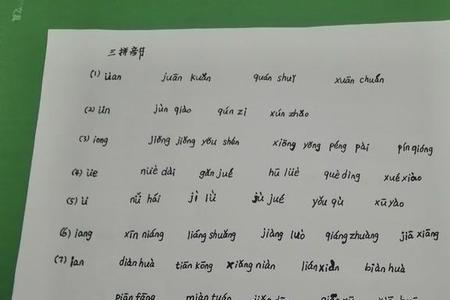 三拼音节
(1) üan juān kuǎn quán shuǐ xuān chuǎn
(2) ün jùn qiào qún zi xún zhǎo
(3) iong jiǒng jiǒng yǒu shén xiōng yǒng péng pài pín qióng
(4) üe nüè dài gǎn jué hū lüè què dìng xué xiào
(5) ü nǚ hái jì lǜ jù jué yǒu qù xū yào
(6) iang xīn niáng liáng shuǎng jiàng luò qiáng zhuàng jiā xiāng
(7) ian diàn huà tiān kōng xiǎng niàn lián xiàn biàn huà
piān fāng miàn tuán